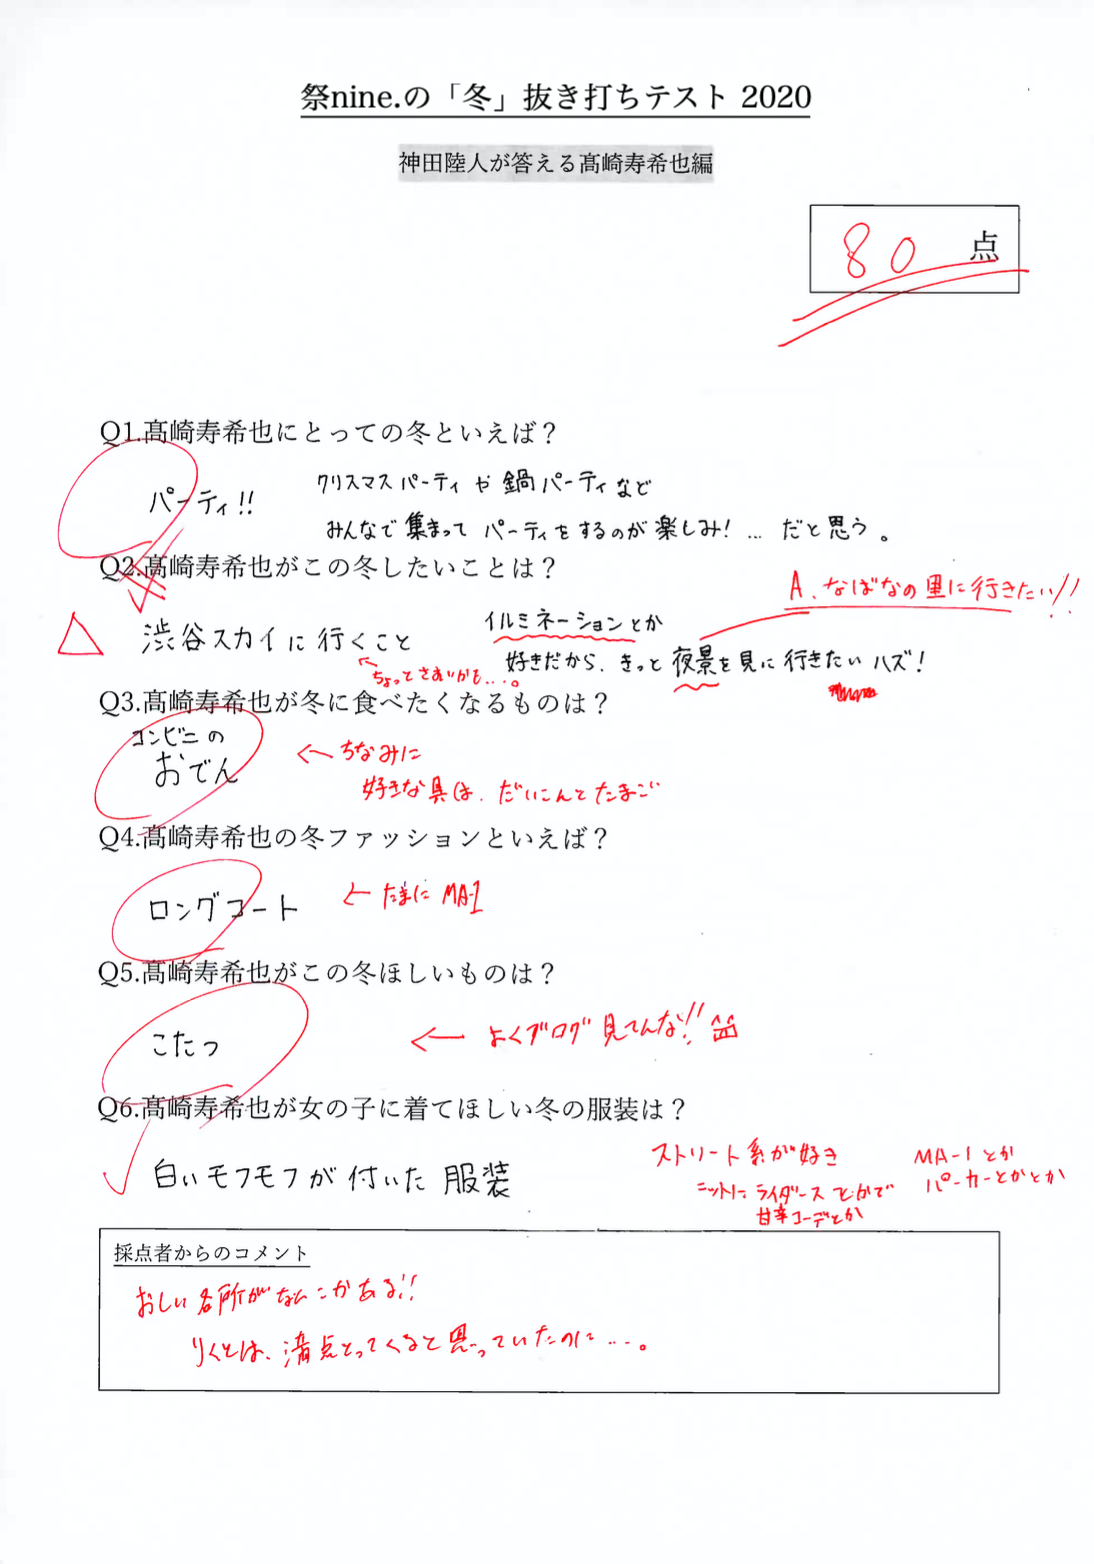 祭nine.の「冬」抜き打ちテスト 2020
神田陸人が答える髙崎寿希也編
80 点
Q1.髙崎寿希也にとっての冬といえば？
パーティ!!
クリスマスパーティや鍋パーティなど
みんなで集まってパーティをするのが楽しみ!…だと思う。
Q2.髙崎寿希也がこの冬したいことは？
A.なばなの里に行きたい!!
渋谷スカイに行くこと
イルミネーションとか
好きだから、きっと夜景を見に行きたいハズ！
←ちょっとさむいかも…。
Q3.髙崎寿希也が冬に食べたくなるものは？
コンビニの
おでん
←ちなみに
好きな具は、だいこんとたまご
Q4.髙崎寿希也の冬ファッションといえば？
ロングコート
←たまにMA-1
Q5.髙崎寿希也がこの冬ほしいものは？
こたつ
←よくブログ見てんな!!
Q6.髙崎寿希也が女の子に着てほしい冬の服装は？
白いモフモフが付いた服装
ストリート系が好き
ニットにライダースとかで
甘辛コーデとか
MA-1とか
パーカーとかとか
採点者からのコメント
おしい各所がなんこかある!!
りくとは、満点とってくると思っていたのに…。